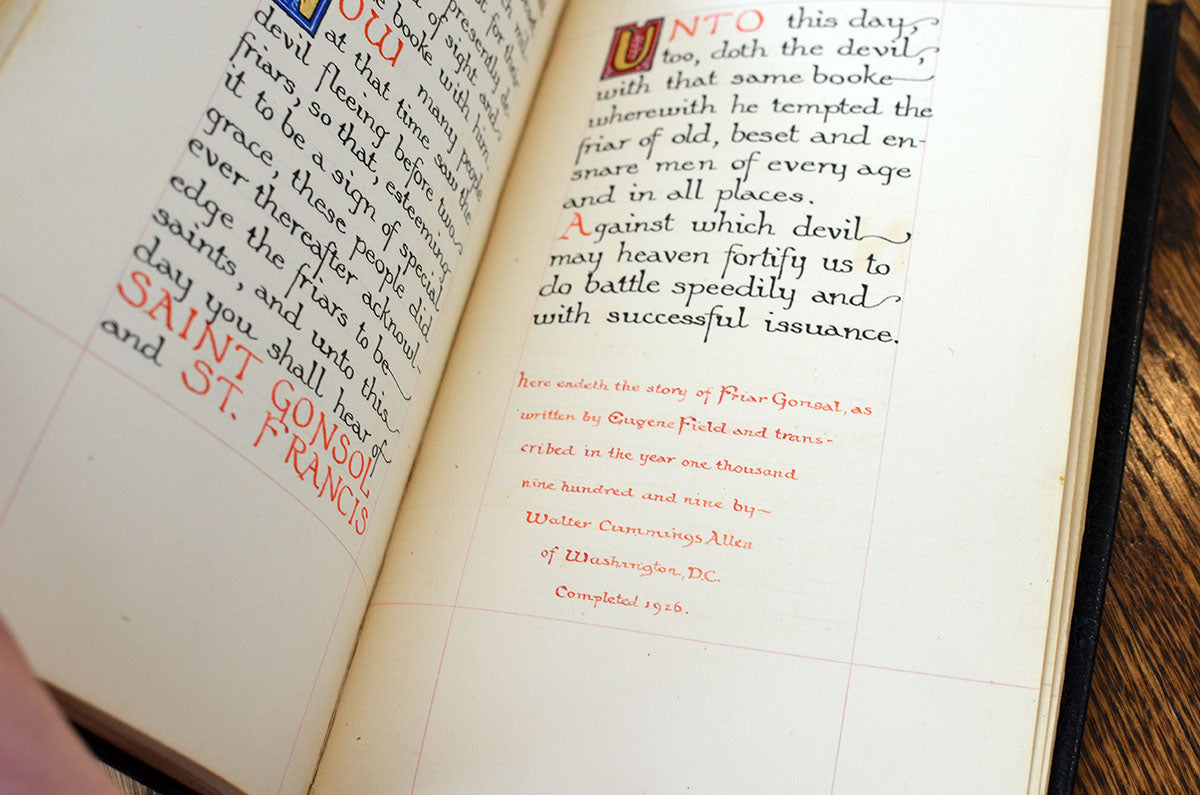 st for their
presently de
of sight and
booke with him
NOW many people
at that time saw the
devil fleeing before two
friars, so that, esteeming
it to be a sign of special
grace, these people did
ever thereafter acknowl-
edge the friars to be
saints, and unto this
day you shall hear of
SAINT GONSOL
and ST. FRANCIS
UNTO this day,
too, doth the devil,
with that same booke
wherewith he tempted the
friar of old, beset and en-
snare men of every age
and in all places.
Against which devil
may heaven fortify us to
do battle speedily and
with successful issuance.
here endeth the story of Friar Gonsal, as
written by Eugene Field and trans-
cribed in the year one thousand
nine hundred and nine by—
Walter Cummings Allen
of Washington, D.C.
Completed 1926.